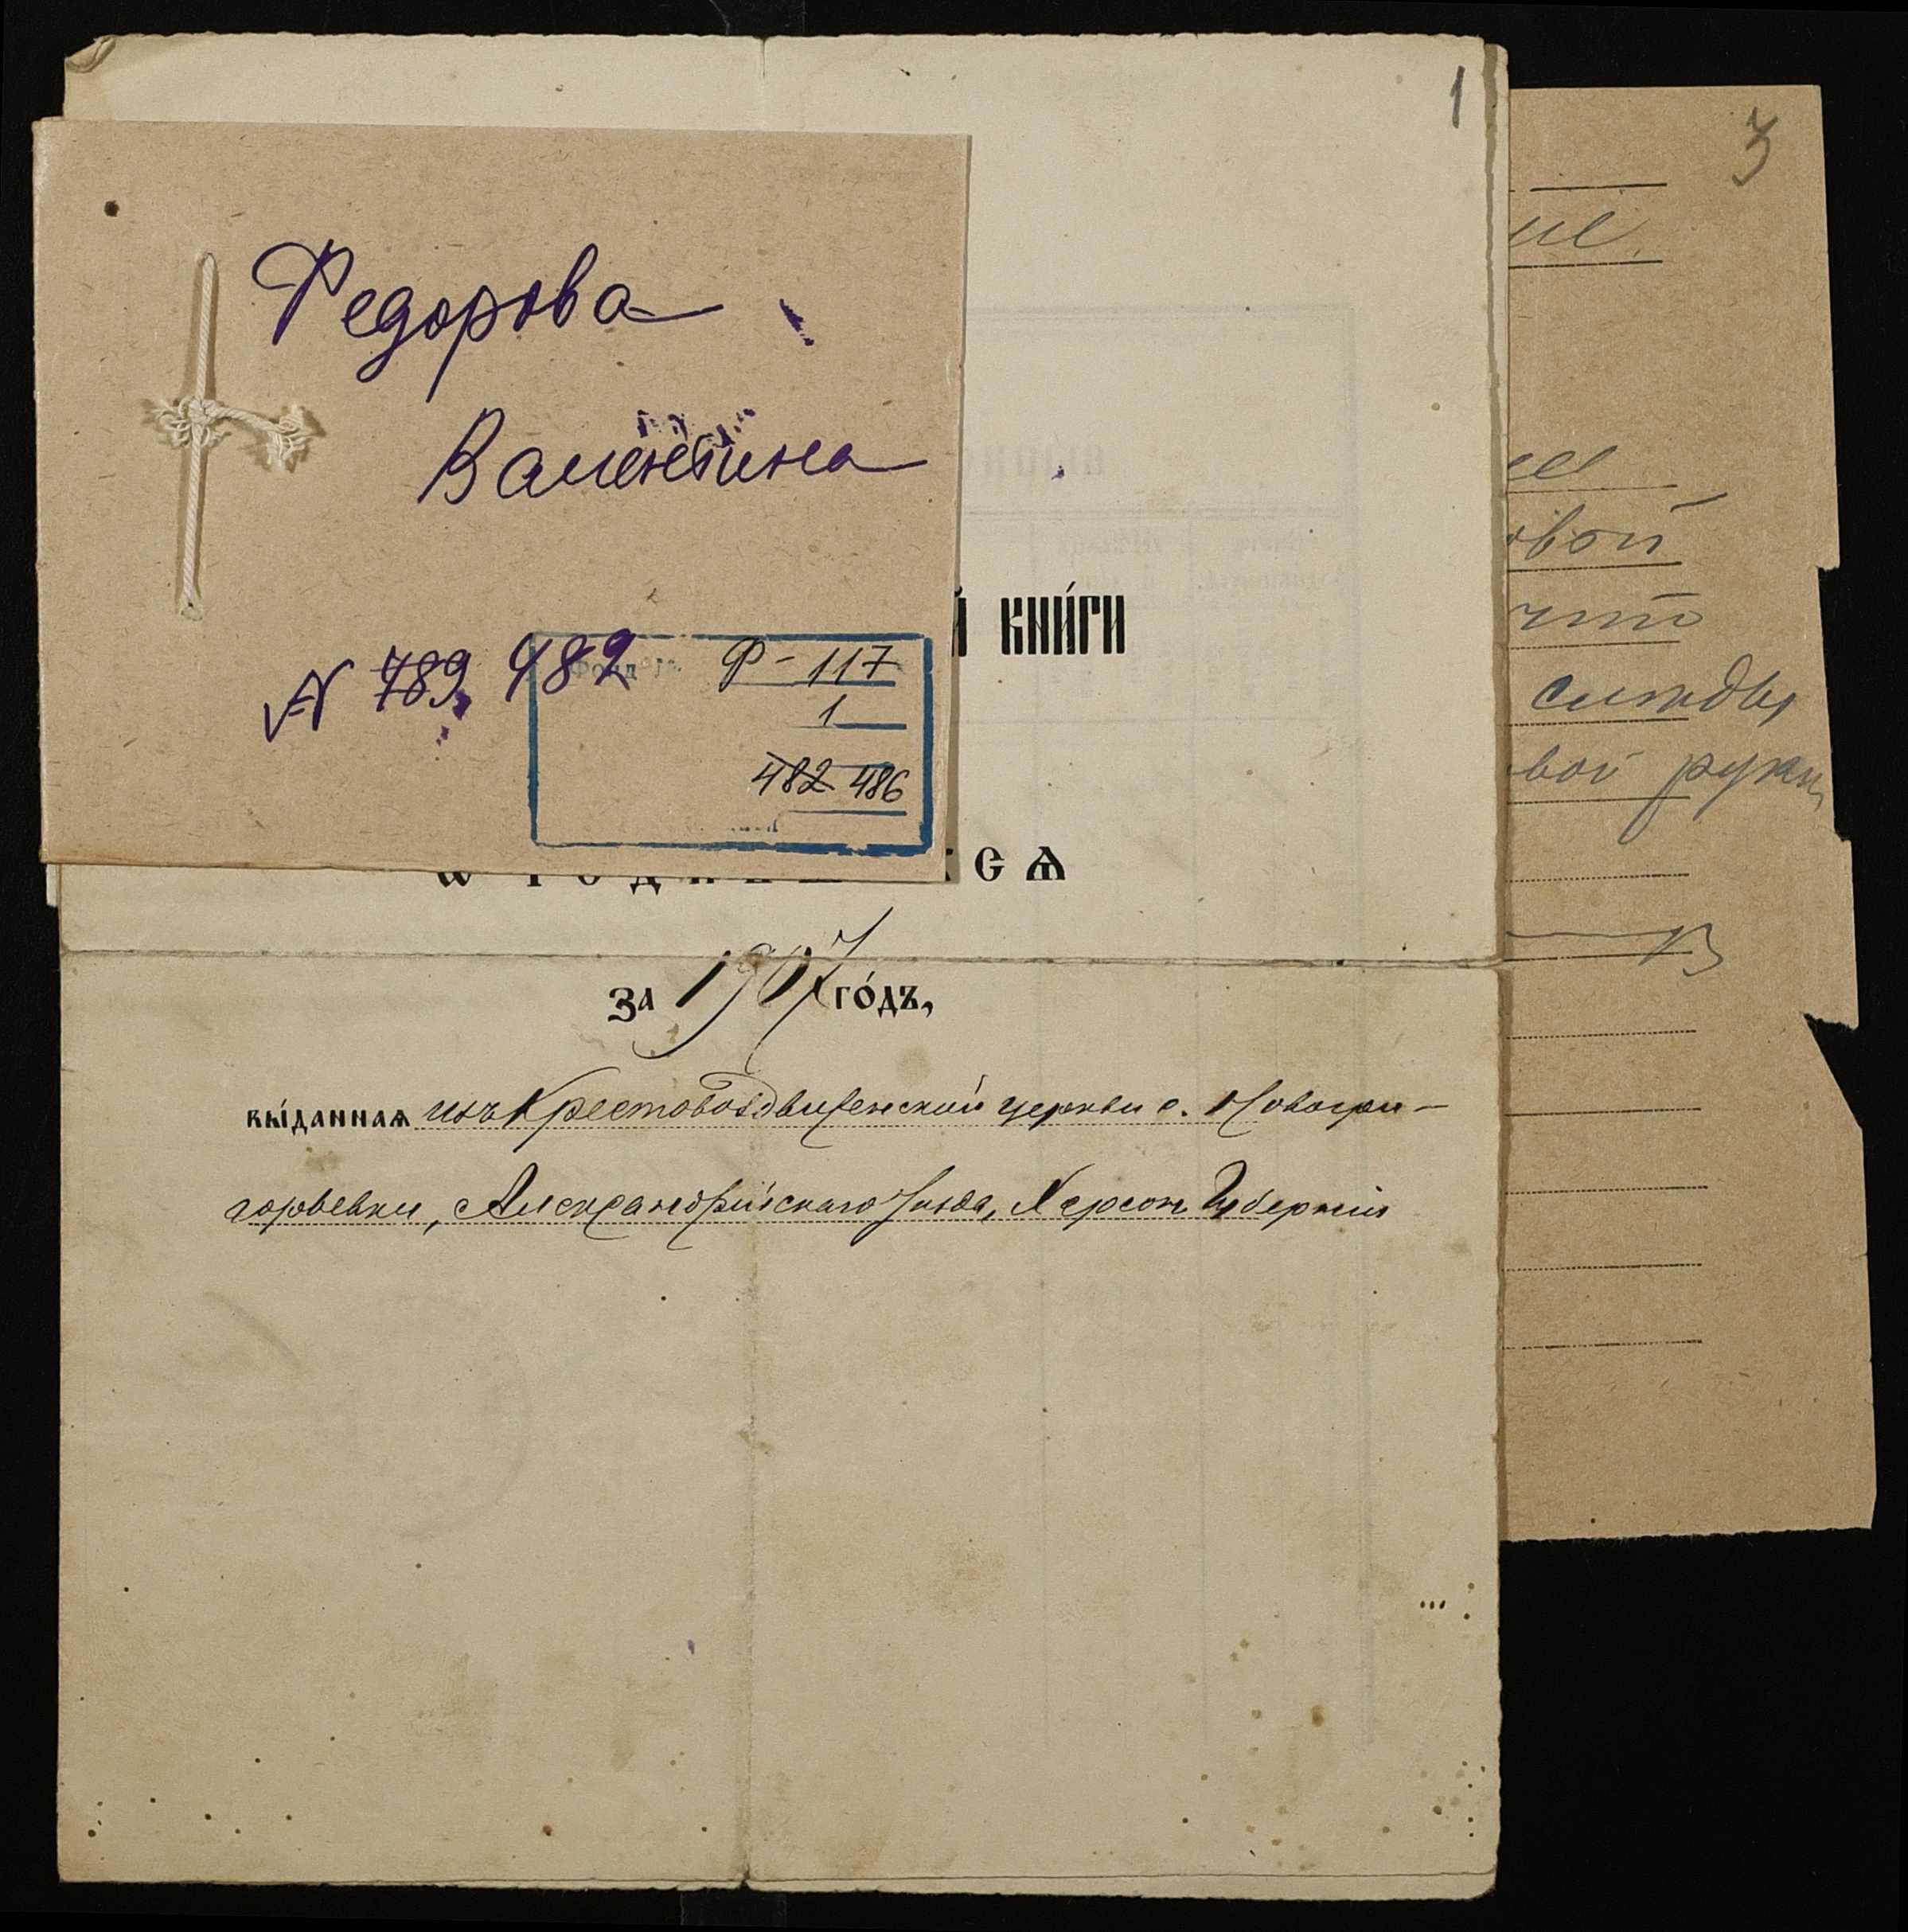 Федорова
Валентина
N 789 482
Фонд Р-117
1
482 486
1
й кни́ги
ксѧ
за 1907 го́дъ,
вы́даннаѧ изъ Крестовоздвиженской церкви с. Новогри-
горьевки, Александрійскаго уѣзда, Херсон. Губерніи
3
ие.
овой
что
вой руки